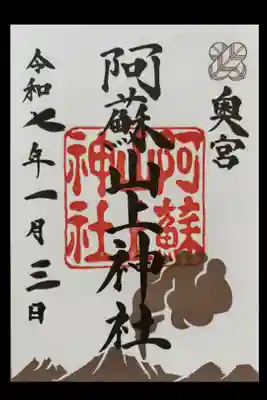 奥宮
阿蘇山上神社
阿蘇
神社
令和七年一月三日